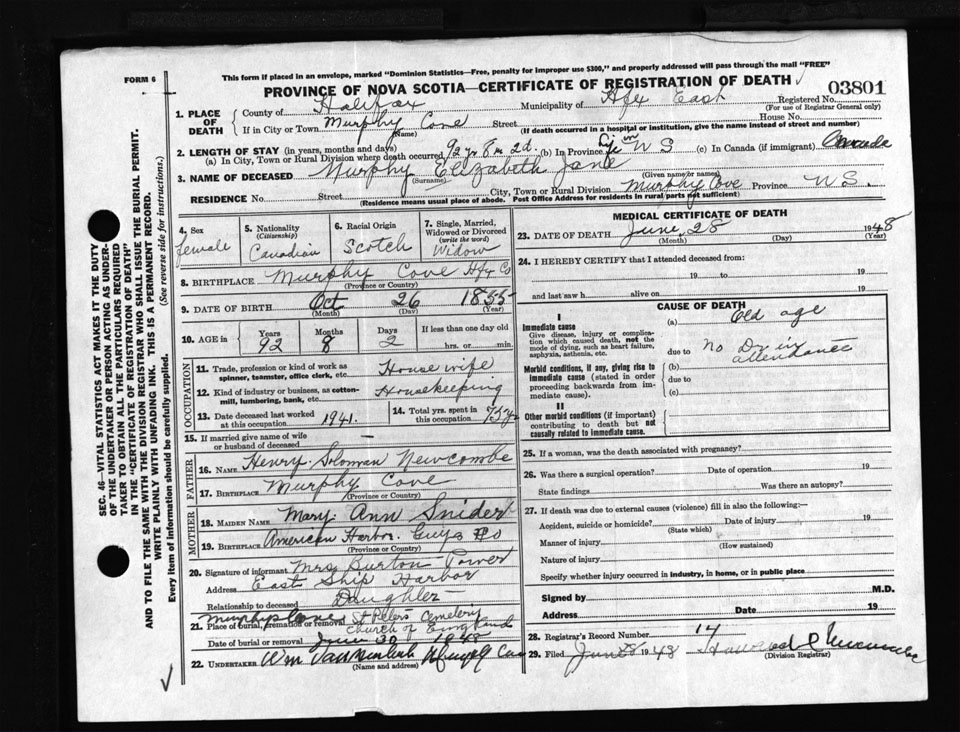 FORM 6
This form if placed in an envelope, marked "Dominion Statistics—Free, penalty for improper use $300," and properly addressed will pass through the mail "FREE"
PROVINCE OF NOVA SCOTIA—CERTIFICATE OF REGISTRATION OF DEATH
03801
Registered No.
(For use of Registrar General only)
1. PLACE OF DEATH
County of Halifax Municipality of Hfx East
If in City or Town Murphy Cove Street House No.
(Name) (If death occurred in a hospital or institution, give the name instead of street and number)
2. LENGTH OF STAY (in years, months and days)
(a) In City, Town or Rural Division where death occurred 92 yr 8 m 2d. (b) In Province N S (c) In Canada (if immigrant) Canada
3. NAME OF DECEASED Murphy Elizabeth Jane
(Surname) (Given name or names)
RESIDENCE No. Street City, Town or Rural Division Murphy Cove Province N S.
(Residence means usual place of abode. Post Office Address for residents in rural parts not sufficient)
4. Sex
female
5. Nationality
(Citizenship)
Canadian
6. Racial Origin
Scotch
7. Single, Married, Widowed or Divorced
(write the word)
Widow
8. BIRTHPLACE Murphy Cove Hfx Co
(Province or Country)
9. DATE OF BIRTH Oct 26 1855
(Month) (Day) (Year)
10. AGE in Years Months Days If less than one day old
92 8 2 hrs. or min.
OCCUPATION
11. Trade, profession or kind of work as spinner, teamster, office clerk, etc. House wife
12. Kind of industry or business, as cotton-mill, lumbering, bank, etc. Housekeeping
13. Date deceased last worked at this occupation 1941.
14. Total yrs. spent in this occupation
15. If married give name of wife or husband of deceased —
FATHER
16. NAME Henry Soloman Newcombe
17. BIRTHPLACE Murphy Cove
(Province or Country)
MOTHER
18. MAIDEN NAME Mary Ann Snider
19. BIRTHPLACE American Harbor. Guys Co
(Province or Country)
20. Signature of informant Mrs Burton Power
Address East Ship Harbor
Relationship to deceased Daughter
21. Place of burial, cremation or removal Murphys Cove St Peters Cemetery
Church of England
Date of burial or removal June 30 1948
22. UNDERTAKER Wm
(Name and address)
MEDICAL CERTIFICATE OF DEATH
23. DATE OF DEATH June 28 1948
(Month) (Day) (Year)
24. I HEREBY CERTIFY that I attended deceased from:
19 to 19
and last saw h alive on 19
CAUSE OF DEATH
I
Immediate cause
Give disease, injury or complication which caused death, not the mode of dying, such as heart failure, asphyxia, asthenia, etc.
(a) Old age
due to No Dr in attendance
Morbid conditions, if any, giving rise to immediate cause (stated in order proceeding backwards from immediate cause).
(b)
due to
(c)
II
Other morbid conditions (if important) contributing to death but not causally related to immediate cause.
25. If a woman, was the death associated with pregnancy?
26. Was there a surgical operation? Date of operation 19
State findings Was there an autopsy?
27. If death was due to external causes (violence) fill in also the following:
Accident, suicide or homicide? Date of injury 19
(State which)
Manner of injury
(How sustained)
Nature of injury
Specify whether injury occurred in industry, in home, or in public place
Signed by M.D.
Address Date 19
28. Registrar's Record Number 14
29. Filed June 1948
(Division Registrar)
SEC. 46—VITAL STATISTICS ACT MAKES IT THE DUTY
OF THE UNDERTAKER OR PERSON ACTING AS UNDER-
TAKER TO OBTAIN ALL THE PARTICULARS REQUIRED
IN THE "CERTIFICATE OF REGISTRATION OF DEATH"
AND TO FILE THE SAME WITH THE DIVISION REGISTRAR WHO SHALL ISSUE THE BURIAL PERMIT.
WRITE PLAINLY WITH UNFADING INK. THIS IS A PERMANENT RECORD.
Every item of Information should be carefully supplied. (See reverse side for instructions.)